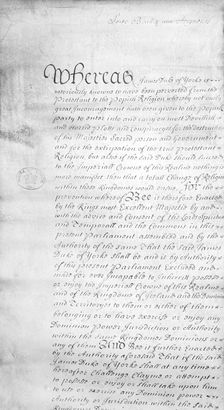 Whereas James Duke of York is
notoriously known to have been perverted from the
Protestant to the Popish Religion whereby not only
great Encouragement hath been given to the Popish
party to enter into and carry on most Devillish
and horrid plots and Conspiracyes for the destruction
of his Majesties Sacred person and Government
and for the extirpation of the true Protestant
Religion But also if the said Duke should succeed
to the Imperiall Crowne of this Realme nothing is
more manifest then that a totall Change of Religion
within these Kingdomes would ensue, For the
prevention whereof Bee it therefore Enacted
by the Kings most Excellent Majestie by and
with the advice and Consent of the Lords Spirituall
and Temporall and the Commons in this
present Parliament assembled and by the
Authority of the same That the said James
Duke of York shall be and is by Authority
of this present Parliament Excluded and
made for ever uncapable to inherit possesse
or enjoy the Imperiall Crowne of this Realme
and of the Kingdome of Ireland and the Dominions
and Territoryes to them or either of them
belonging or to have exercise or enjoy any
Dominion power Jurisdiction or Authority
within the same Kingdomes Dominions or
any of them And Bee it further Enacted
by the Authority aforesaid That if the said
James Duke of York shall at any time
hereafter Challenge Clayme or attempt
to possesse or enjoy or shall take upon him
to use or exercise any Dominion power
Authority or Jurisdiction within the said